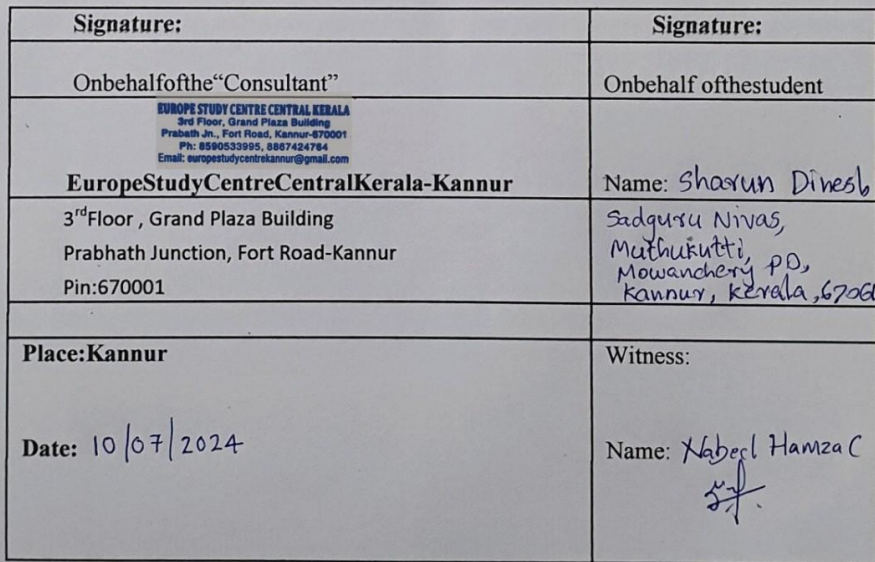 Signature:
Signature:
Onbehalfofthe“Consultant”
Onbehalf ofthestudent
EUROPE STUDY CENTRE CENTRAL KERALA
3rd Floor, Grand Plaza Building
Prabath Jn., Fort Road, Kannur-670001
Ph: 8590533995, 8867424764
Email: europestudycentrekannur@gmail.com
EuropeStudyCentreCentralKerala-Kannur
Name: Sharun Dinesh
3rdFloor , Grand Plaza Building
Prabhath Junction, Fort Road-Kannur
Pin:670001
Sadguru Nivas,
Muthukutti,
Mowanchery PO,
Kannur, Kerala,
Place:Kannur
Witness:
Date: 10/07/2024
Name: Nabeel Hamza C